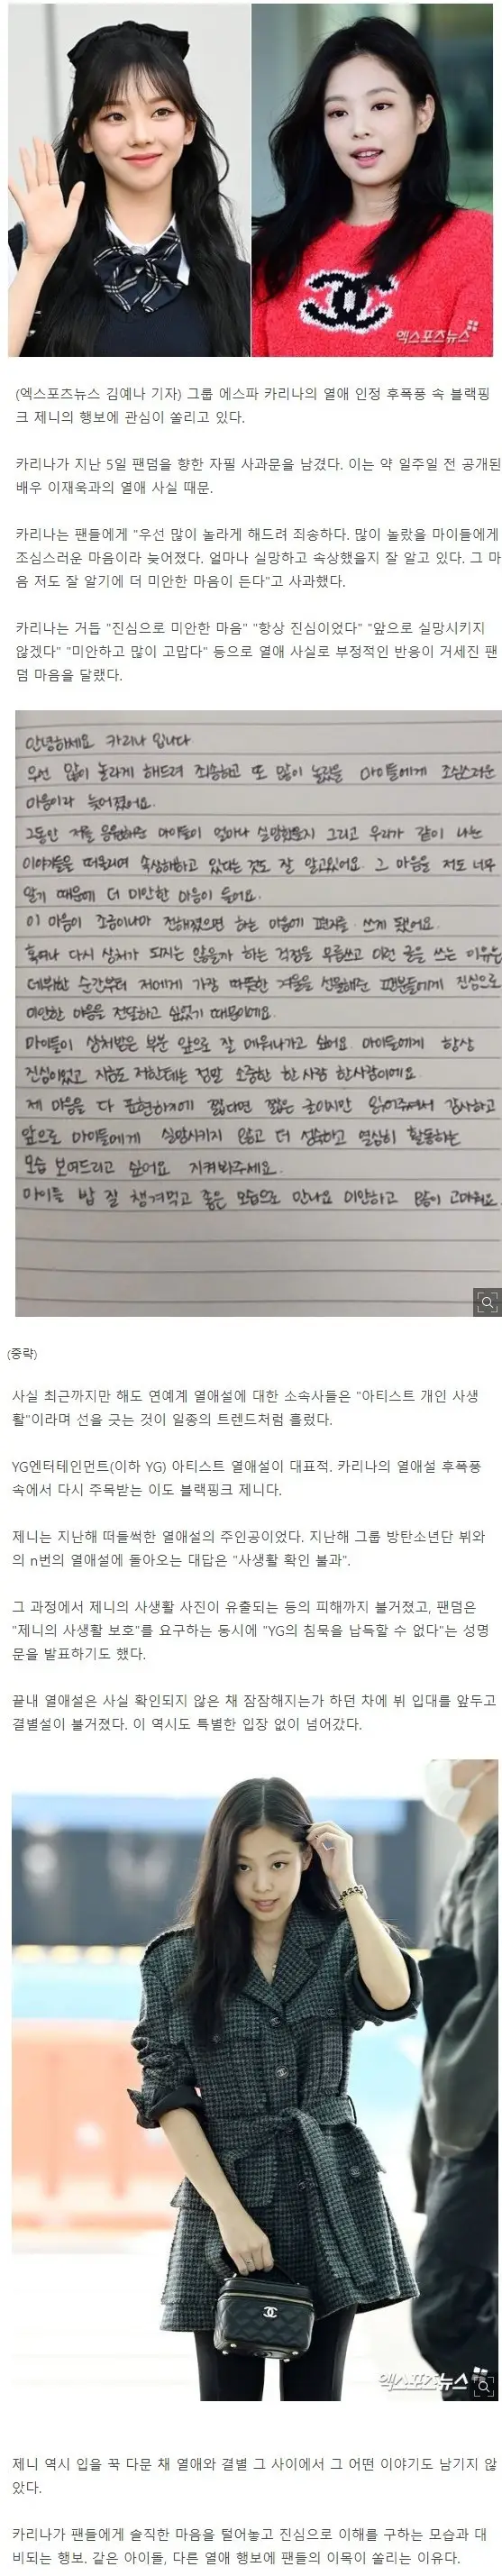 엑스포츠뉴스
(엑스포츠뉴스 김예나 기자) 그룹 에스파 카리나의 열애 인정 후폭풍 속 블랙핑
크 제니의 행보에 관심이 쏠리고 있다.
카리나가 지난 5일 팬덤을 향한 자필 사과문을 남겼다. 이는 약 일주일 전 공개된
배우 이재욱과의 열애 사실 때문.
카리나는 팬들에게 "우선 많이 놀라게 해드려 죄송하다. 많이 놀랐을 마이들에게
조심스러운 마음이라 늦어졌다. 얼마나 실망하고 속상했을지 잘 알고 있다. 그 마
음 저도 잘 알기에 더 미안한 마음이 든다"고 사과했다.
카리나는 거듭 "진심으로 미안한 마음" "항상 진심이었다" "앞으로 실망시키지
않겠다" "미안하고 많이 고맙다" 등으로 열애 사실로 부정적인 반응이 거세진 팬
덤 마음을 달랬다.
안녕하세요 카리나 입니다
우선 많이 놀라게 해드려 죄송하고 또 많이 놀랐을 마이들에게 조심스러운
마음이라 늦어졌어요.
그동안 저를 응원해준 마이들이 얼마나 실망했을지 그리고 우리가 같이 나눈
이야기들을 떠올리며 속상해하고 있다는 것도 잘 알고있어요. 그 마음을 저도 너무
알기 때문에 더 미안한 마음이 들어요.
이 마음이 조금이나마 전해졌으면 하는 마음에 편지를 쓰게 됐어요.
혹여나 다시 상처가 되지는 않을까 하는 걱정을 무릅쓰고 이런 글을 쓰는 이유는
데뷔한 순간부터 저에게 가장 따뜻한 겨울을 선물해준 팬분들에게 진심으로
미안한 마음을 전달하고 싶었기 때문이에요.
마이들이 상처받은 부분 앞으로 잘 메워나가고 싶어요. 마이들에게 항상
진심이었고 지금도 저한테는 정말 소중한 한 사람 한사람이에요.
제 마음을 다 표현하기에 짧다면 짧은 글이지만 읽어주셔서 감사하고
앞으로 마이들에게 실망시키지 않고 더 성숙하고 열심히 활동하는
모습 보여드리고 싶어요 지켜봐주세요.
마이들 밥 잘 챙겨먹고 좋은 모습으로 만나요 미안하고 많이 고마워요.
(중략)
사실 최근까지만 해도 연예계 열애설에 대한 소속사들은 "아티스트 개인 사생
활"이라며 선을 긋는 것이 일종의 트렌드처럼 흘렀다.
YG엔터테인먼트(이하 YG) 아티스트 열애설이 대표적. 카리나의 열애설 후폭풍
속에서 다시 주목받는 이도 블랙핑크 제니다.
제니는 지난해 떠들썩한 열애설의 주인공이었다. 지난해 그룹 방탄소년단 뷔와
의 n번의 열애설에 돌아오는 대답은 "사생활 확인 불과".
그 과정에서 제니의 사생활 사진이 유출되는 등의 피해까지 불거졌고, 팬덤은
"제니의 사생활 보호"를 요구하는 동시에 "YG의 침묵을 납득할 수 없다"는 성명
문을 발표하기도 했다.
끝내 열애설은 사실 확인되지 않은 채 잠잠해지는가 하던 차에 뷔 입대를 앞두고
결별설이 불거졌다. 이 역시도 특별한 입장 없이 넘어갔다.
엑스포츠뉴스
제니 역시 입을 꾹 다문 채 열애와 결별 그 사이에서 그 어떤 이야기도 남기지 않
았다.
카리나가 팬들에게 솔직한 마음을 털어놓고 진심으로 이해를 구하는 모습과 대
비되는 행보. 같은 아이돌, 다른 열애 행보에 팬들의 이목이 쏠리는 이유다.